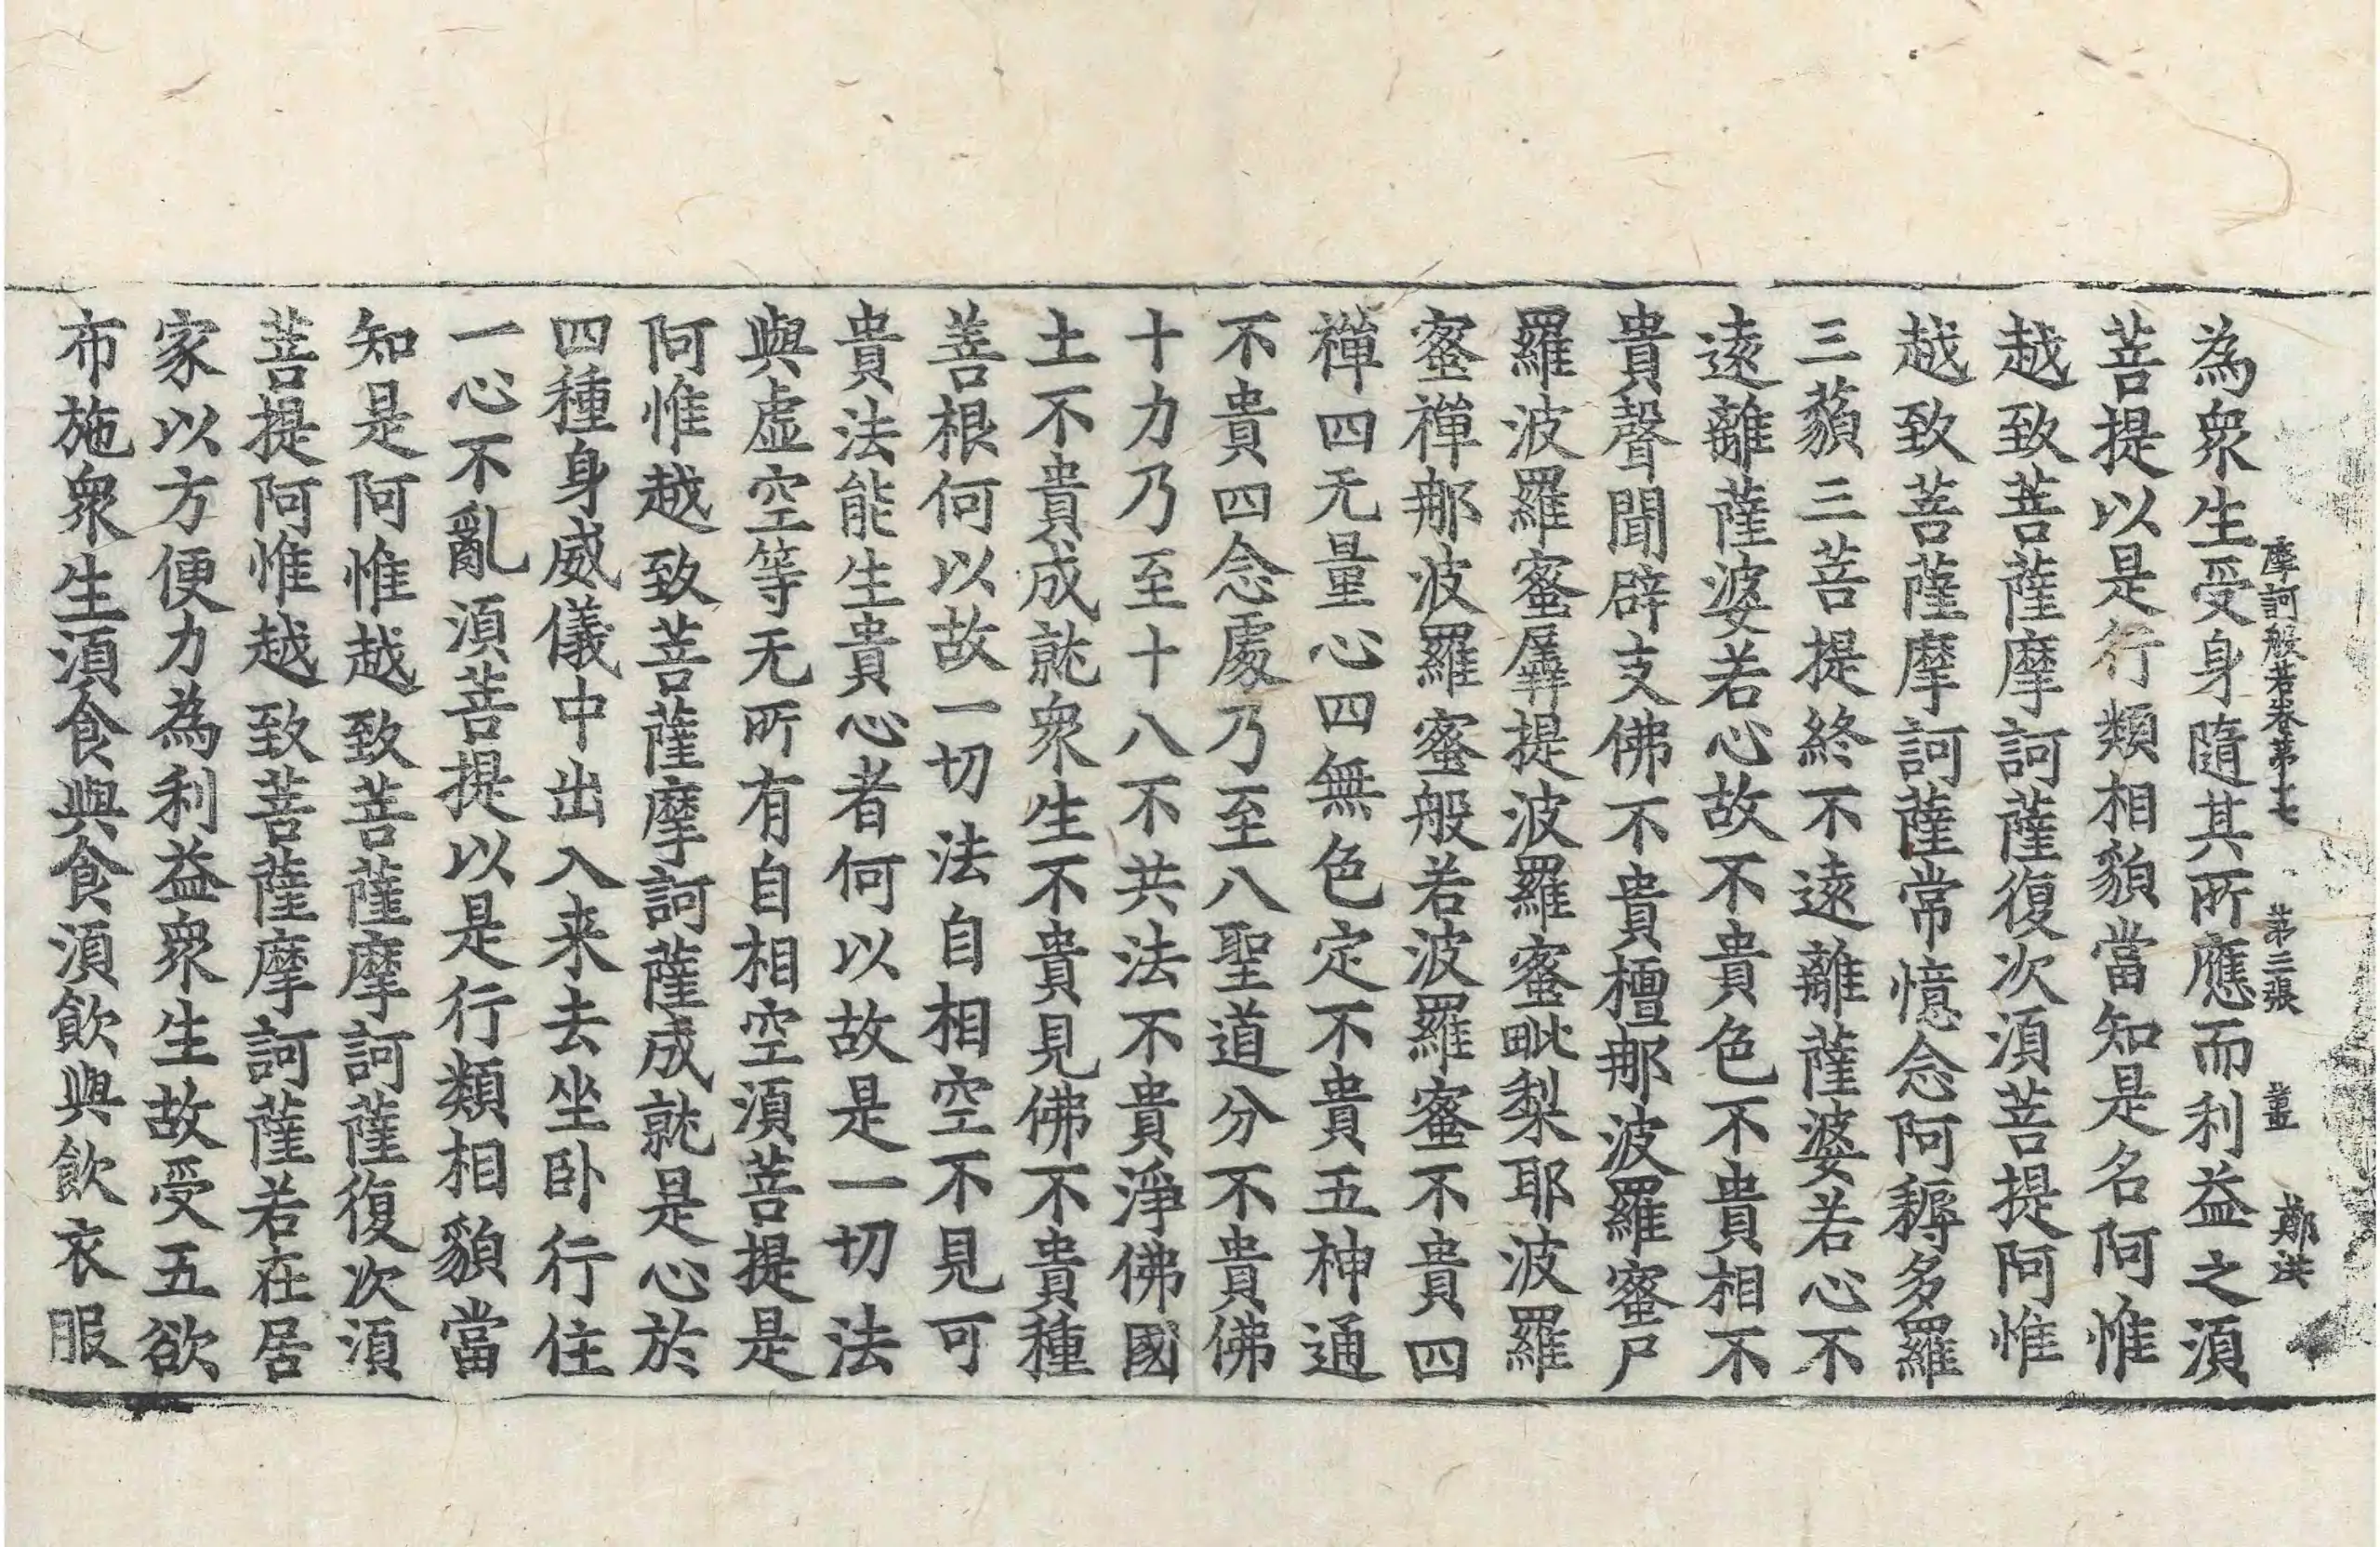 為衆生受身隨其所應而利益之湏
摩訶般若卷第十七 第二張 薑 鄭洪
菩提以是行類相貌當知是名阿惟
越致菩薩摩訶薩復次湏菩提阿惟
越致菩薩摩訶薩常憶念阿耨多羅
三藐三菩提終不遠離薩婆若心不
遠離薩婆若心故不貴色不貴相不
貴聲聞辟支佛不貴檀那波羅蜜尸
羅波羅蜜羼提波羅蜜毗梨耶波羅
蜜禪那波羅蜜般若波羅蜜不貴四
禪四无量心四無色定不貴五神通
不貴四念處乃至八聖道分不貴佛
十力乃至十八不共法不貴淨佛國
土不貴成就衆生不貴見佛不貴種
善根何以故一切法自相空不見可
貴法能生貴心者何以故是一切法
與虛空等无所有自相空湏菩提是
阿惟越致菩薩摩訶薩成就是心於
四種身威儀中出入来去坐卧行住
一心不亂湏菩提以是行類相貌當
知是阿惟越致菩薩摩訶薩復次湏
菩提阿惟越致菩薩摩訶薩若在居
家以方便力為利益衆生故受五欲
布施衆生湏食與食湏飲與飲衣服